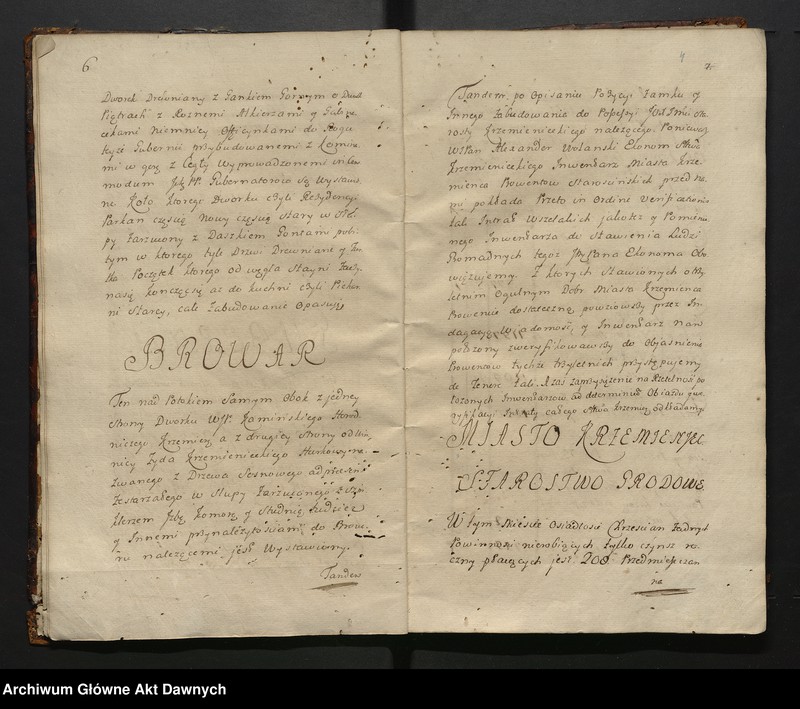 6
Dworek Drewniany z Gankiem Gornym o Dwóch
Piętrach z Roznemi Alkierzami y Gale
rekami Niemniey Officynkami do Rogu
tegoż Gubernii przybudowanemi z Komina
mi w górę z Cegły Wyprowadzonemi
modum JchPP. Gubernatorów są Wystawio
ne Koło ktorego Dworku czyli Rezydencyi
Parkan częscią Nowy częscią stary w Słu
py Zarzniony z Daszkiem Gontami pobi
tym w ktorego tyle Drzwi Drewniane y Fur
tka Początek ktorego od węgła Stayni
kończący aż do kuchni czyli Piekar
ni starey, całe Zabudowanie Opasuje
BROWAR
Ten nad Potokiem Samym Obok z jedney
strony Dworku WP. Kamińskiego
niczego Krzemien: a z drugiey strony od Win
nicy Żyda Krzemienieckiego
zwanego z Drzewa Sosnowego
Zestarzałego w Słupy Zarzucanego
Izbę Komorę y Studnię tudzież
y Innemi przynależytościami do Browa
ru nalezącemi jest Wystawiony.
Tandem
7
Tandem po Opisaniu Pozycyi Zamku y
Innego Zabudowania do Possessyi JWImci Sta
rosty Krzemienieckiego należącego. Ponieważ
WJPan Alexander Wolański Ekonom Sttwa
Krzemienieckiego Inwentarz Miasta Krze
mienca Prowentow Starościńskich przed na
mi pokłada Przeto in Ordine Verificationis
tak Intrat Wszelakich jako też y Pomienio
nego Inwentarza do Stawienia Ludzi
Gromadnych tegoż JPana Ekonoma Obo
wiązujemy. Z ktorych Stawionych o Rze
telnym Ogulnym Dobr Miasta Krzemienca
Prowencie dostateczną powziowszy przez In
dagacyą Wiadomość, y Inwentarz nam
położony zweryfikowawszy do Objasnienia
Prowentow tychże trzyletnich przystępujemy
de Tenore tali. A zas zaprzysiężenie na Rzetelność po
łożonych Inwentarzow ad terminum Objazdu
ryfikacyi Intraty całego Sttwa Krzemien: odkładamy.
MIASTO KRZEMIENIEC
STAROSTWO GRODOWE.
W tym Miescie Osiadłości Chrzescian Zadnych
Powinności nierobiących Tylko czynsz ro
czny płacących jest 200 Przedmieszczan
na
Archiwum Główne Akt Dawnych